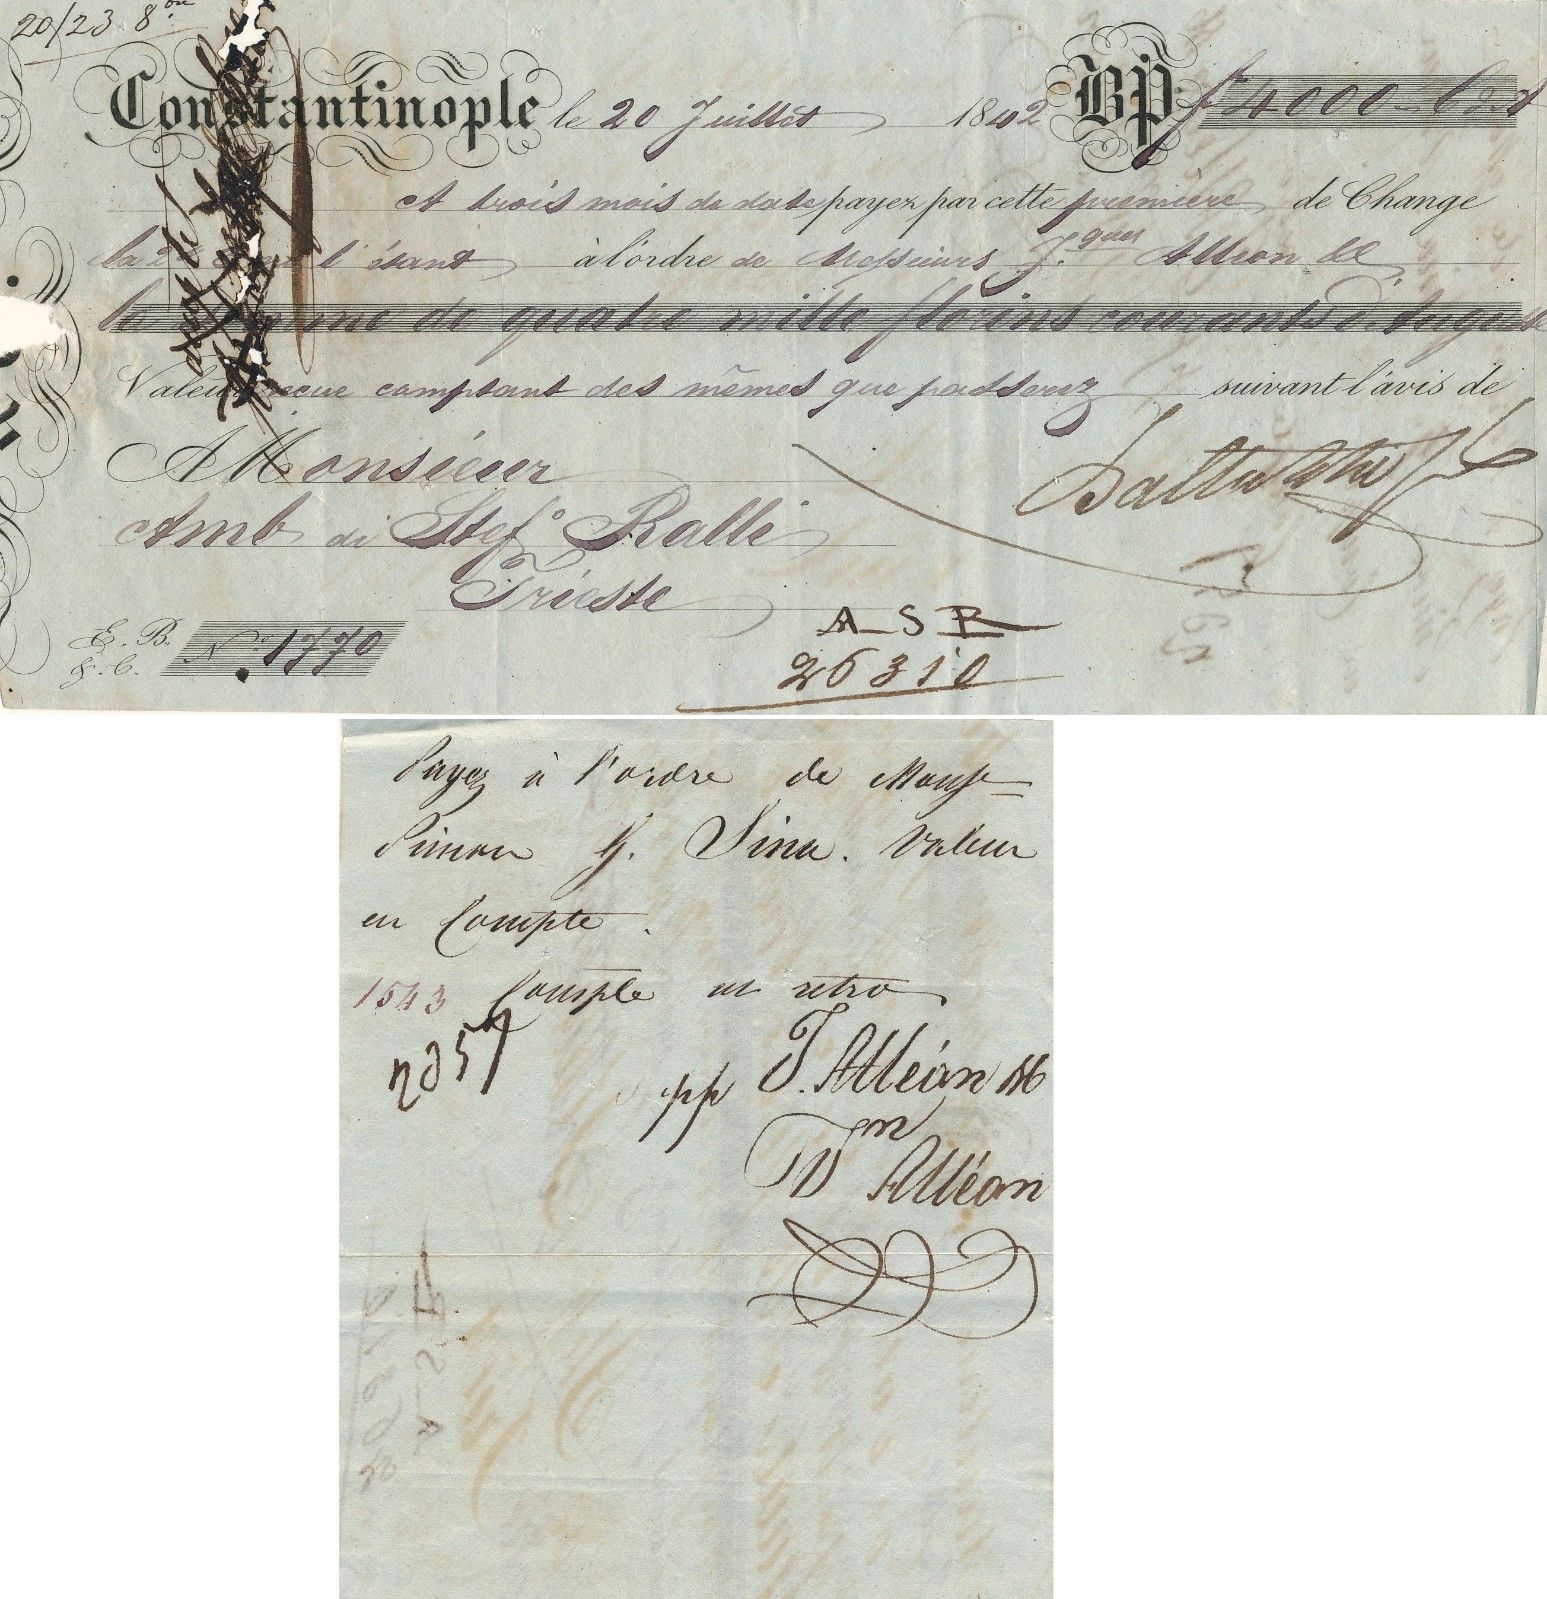 20/23 8bre
Constantinople le 20 Juillet 1842 BP f 4000
A trois mois de date payez par cette première de Change
la 2de l'étant à l'ordre de Messieurs J.ques Alleon &C
la somme de quatre mille florins courants d'Auguste
Valeur reçue comptant des mêmes que passerez suivant l'avis de
A Monsieur
Amb di Stef.o Ralli
Trieste
E. B.
&. C. No. 1770
A S R
26310
Payez à l'ordre de Mons.
Simon G. Sina. Valeur
en Compte.
1543 Compte en retro
2057
pp J. Alléon &C
Alléon